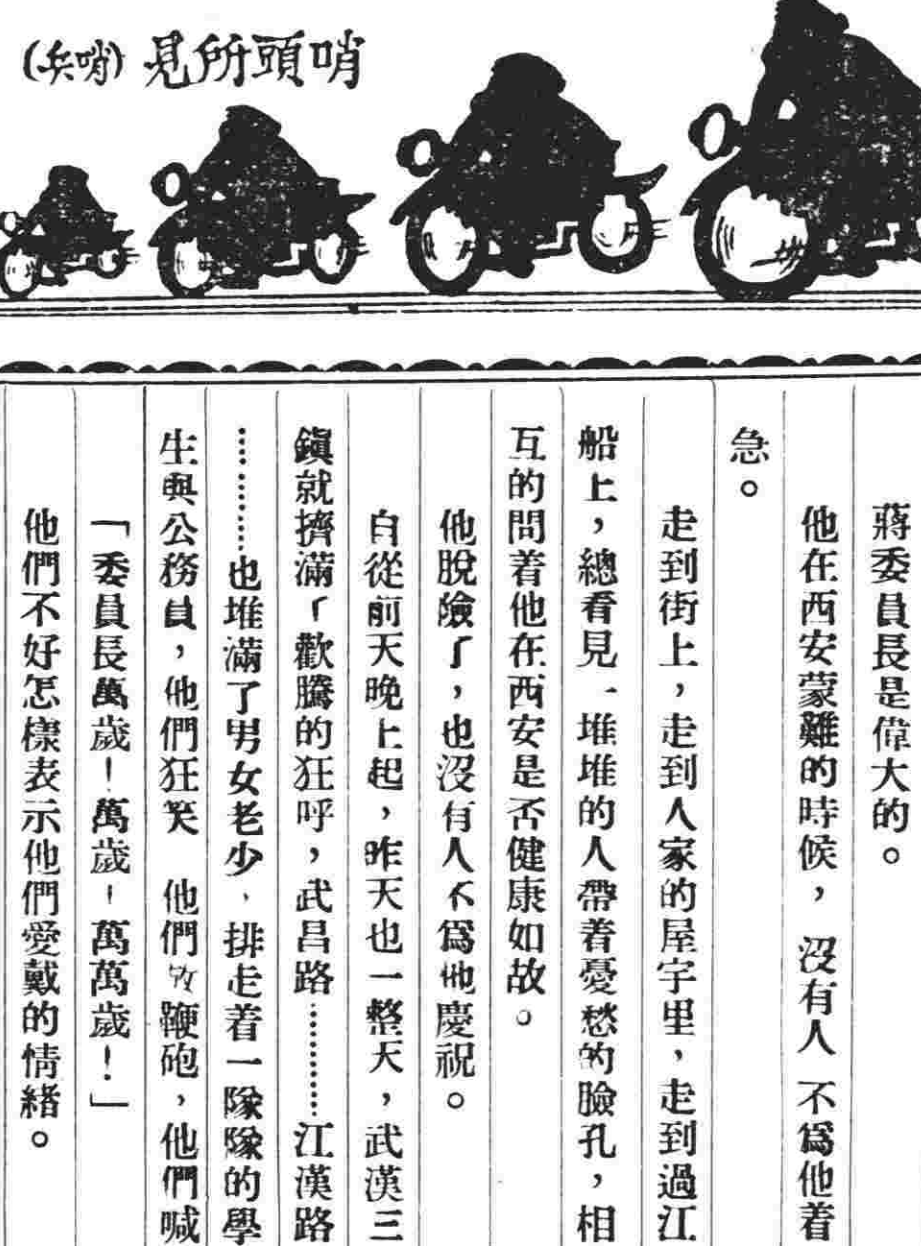 哨頭所見 (哨兵)
蔣委員長是偉大的。
他在西安蒙難的時候，沒有人不爲他着
急。
走到街上，走到人家的屋宇里，走到過江
船上，總看見一堆堆的人帶着憂愁的臉孔，相
互的問着他在西安是否健康如故。
他脫險了，也沒有人不爲他慶祝。
自從前天晚上起，昨天也一整天，武漢三
鎭就擠滿了歡騰的狂呼，武昌路…………江漢路
…………也堆滿了男女老少，排走着一隊隊的學
生與公務員，他們狂笑　他們放鞭砲，他們喊
「委員長萬歲！萬歲！萬萬歲！」
他們不好怎樣表示他們愛戴的情緒。